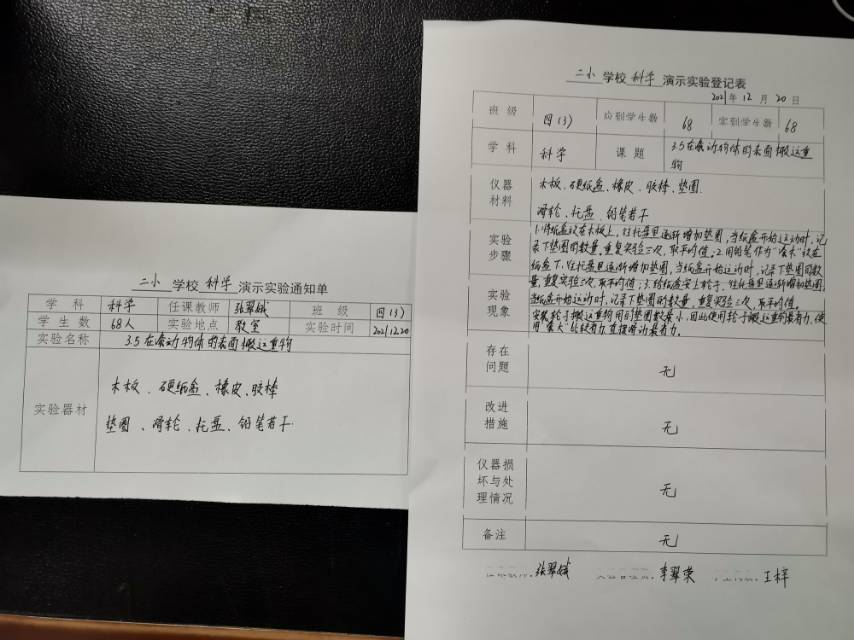 二小 学校 科学 演示实验通知单
学 科 科学 任课教师 张翠娥 班 级 四(3)
学 生 数 68人 实验地点 教室 实验时间 2021.12.20
实验名称 3.5在滚动物体的表面搬运重物
实验器材 木板、硬纸盒、橡皮、胶棒
垫圈、滑轮、托盘、铅笔若干
二小 学校 科学 演示实验登记表
2021年 12 月 20 日
班 级 四(3) 应到学生数 68 实到学生数 68
学 科 科学 课 题 3.5在滚动物体的表面搬运重
物
仪器
材料
木板、硬纸盒、橡皮、胶棒、垫圈
滑轮、托盘、铅笔若干
实验
步骤
1.将纸盒放在木板上,往托盘里逐渐增加垫圈,当纸盒开始运动时,记
录下垫圈的数量。重复实验三次,取平均值。2.用铅笔作为“滚木”放在
纸盒下,往托盘里逐渐增加垫圈,当纸盒开始运动时,记录下垫圈的数
量,重复实验三次,取平均值;3.给纸盒安上轮子,往托盘里逐渐增加垫圈,
当纸盒开始运动时,记录下垫圈的数量,重复实验三次,取平均值。
实验
现象
安装轮子搬运重物用的垫圈数最小,因此使用轮子搬运重物最省力,使
用“滚木”比较省力,直接滑动最费力。
存在
问题
无
改进
措施
无
仪器损
坏与处
理情况
无
备注
无
张翠娥 李翠荣 王梓